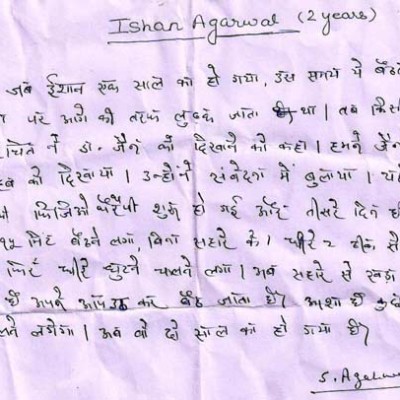 Ishan Agarwal (2 years)
जब ईशान एक साल का हो गया, उस समय ये बैठते
पर आगे की तरफ लुढक जाता था। तब किसी
चित ने डा. जैन को दिखाने को कहा। हमने जैन
को दिखाया। उन्होंने संवेदना में बुलाया।
फिजिओ थैरेपी शुरू हो गई और तीसरे दिन ही
१५ मिनट बैठने लगा, बिना सहारे के। धीरे २
फिर धीरे घुटने चलने लगा। अब सहारे से खड़ा
है अपने आप उठ कर बैठ जाता है। आशा है
लगेगा। अब वो दो साल का हो गया है।
S. Agarwal